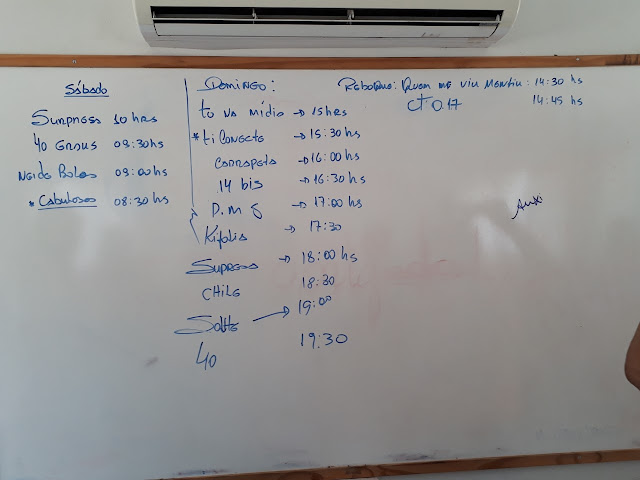 Sábado
Surpresa 10 hrs
40 Graus 09:30hs
Neide Bolos 09:00hs
* Cabulosos 08:30 hs
Domingo:
tô na mídia → 15hrs
* ti Conecta → 15:30hs
Carrapeta → 16:00hs
14 bis → 16:30hs
D.M → 17:00 hs
Kifolia → 17:30
Supresa → 18:00 hs
CHILE 18:30
Solte → 19:00
40 19:30
Rebolano: Quem me viu mentiu: 14:30 hs
14:45 hs